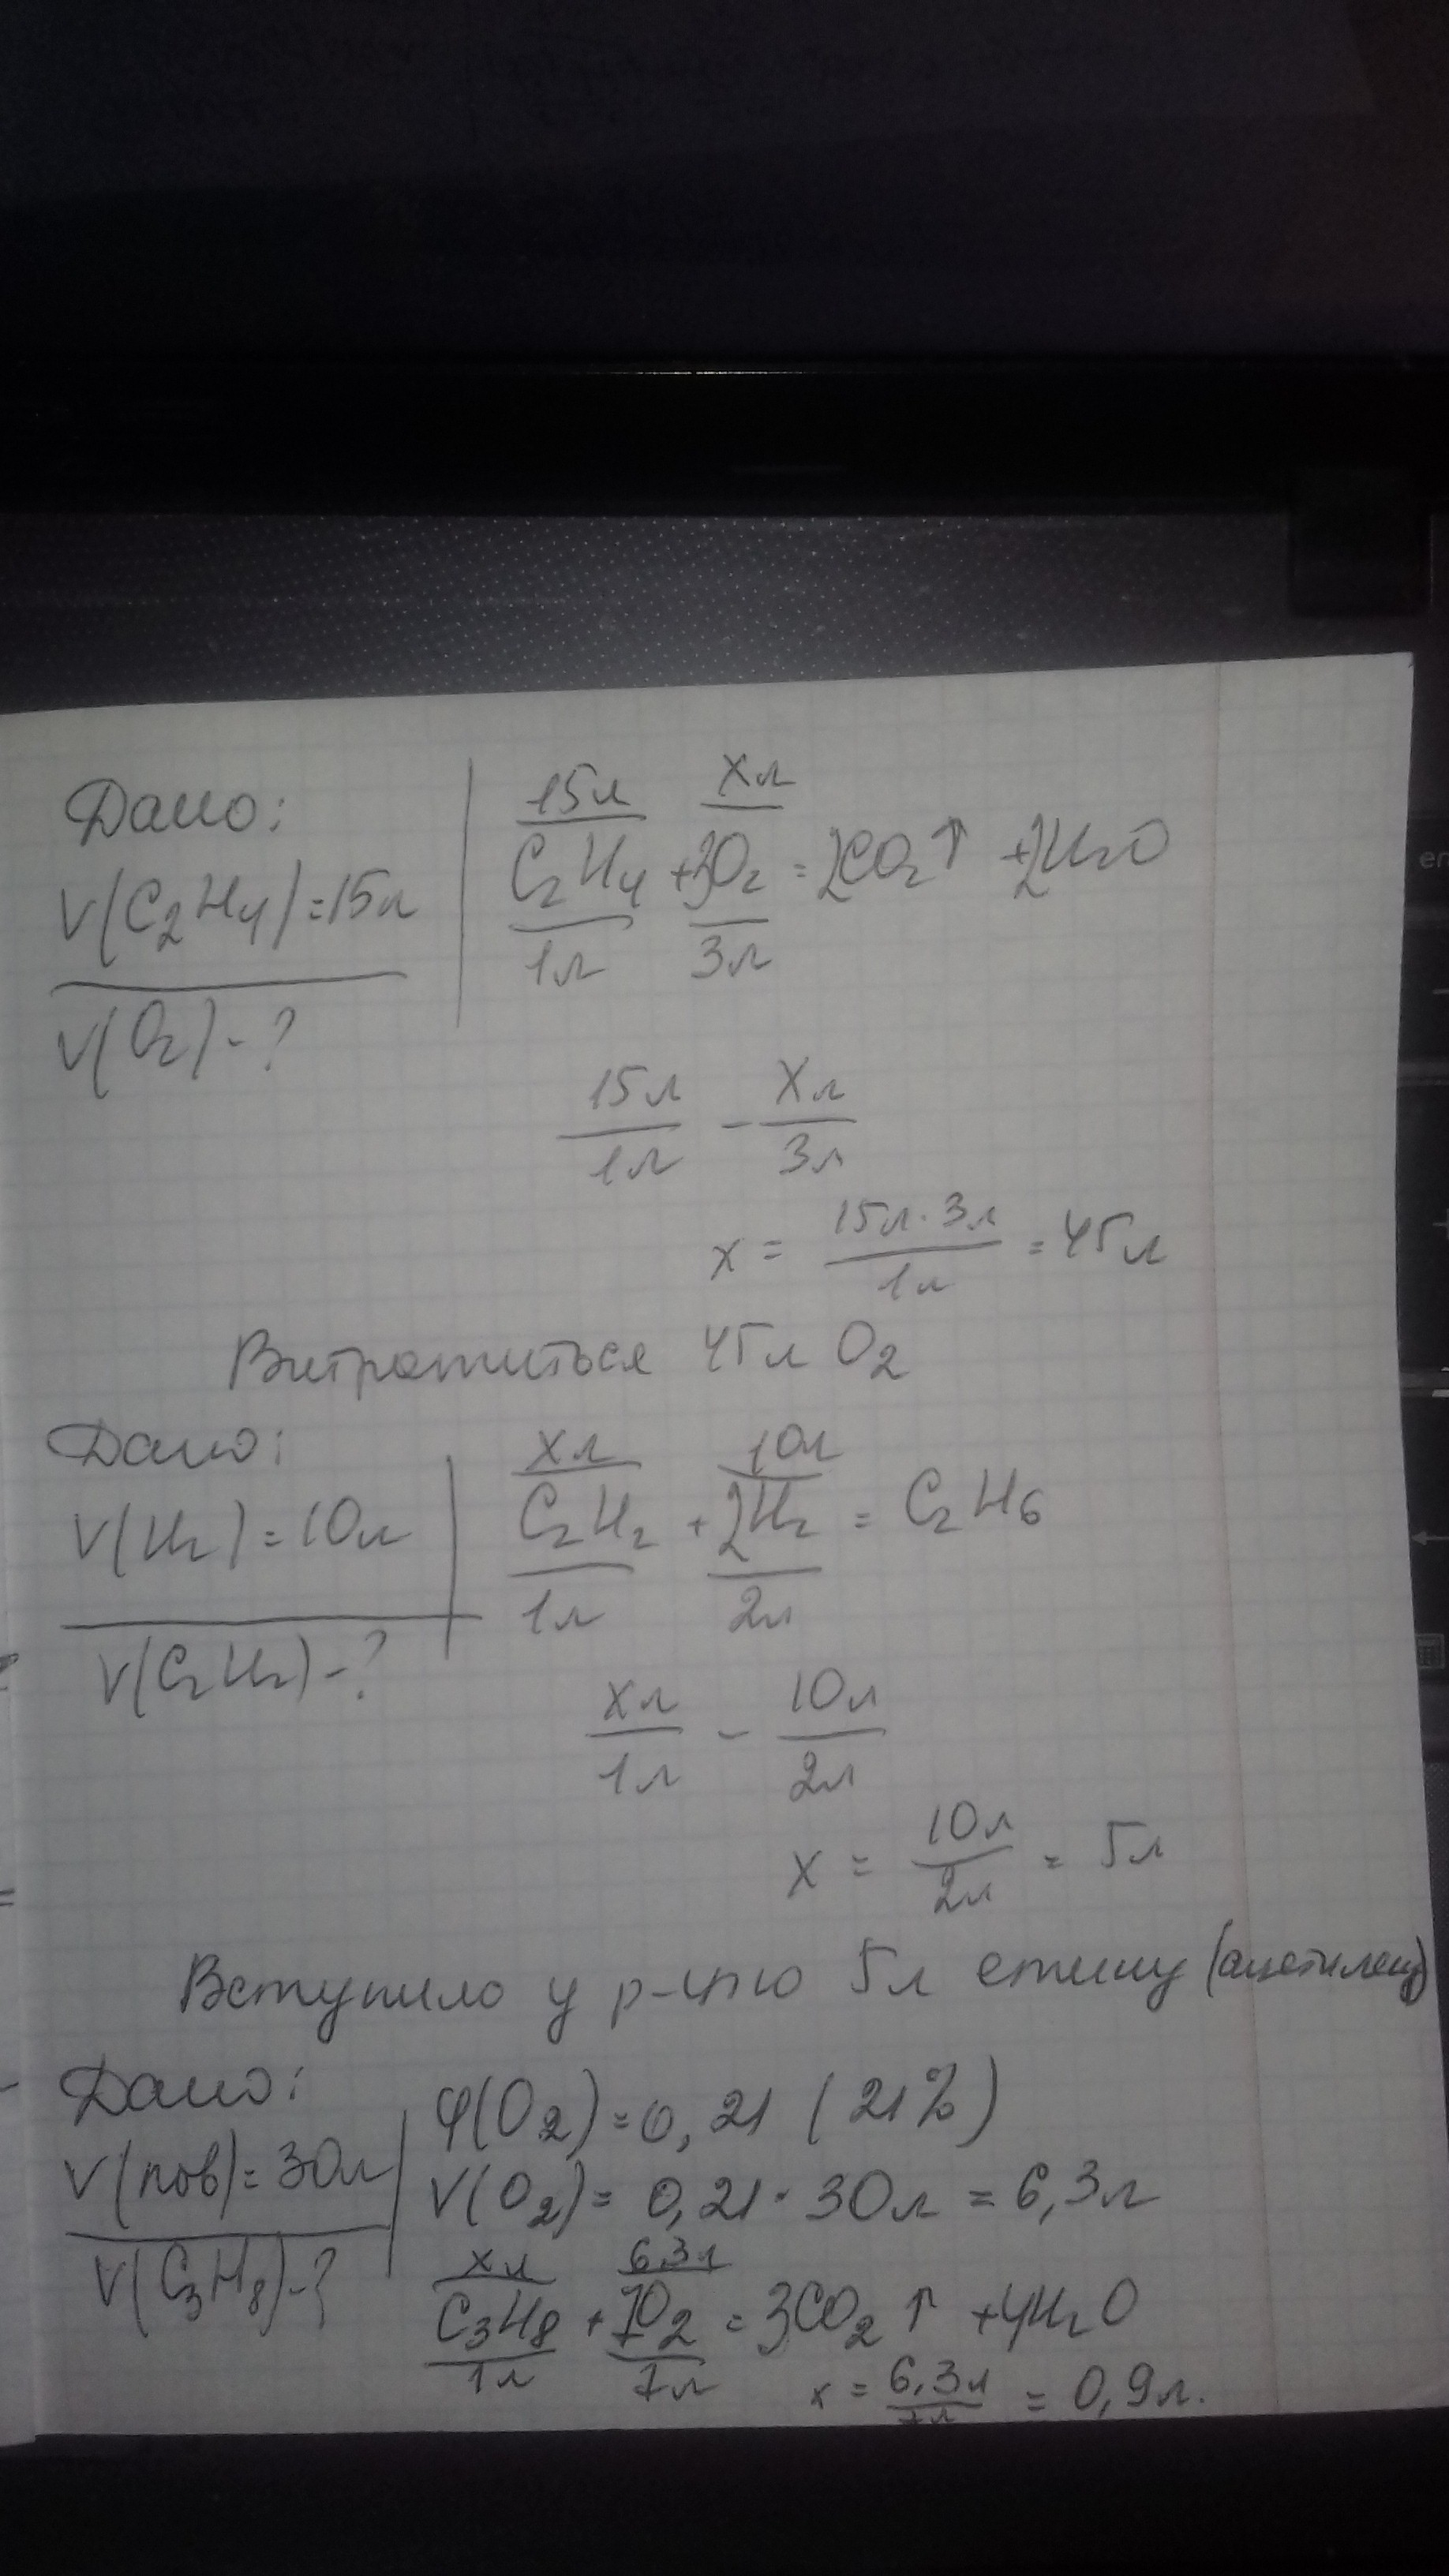 Дано:
V(C₂H₄)=15л
V(O₂)-?
15л xл
C₂H₄ + 3O₂ = 2CO₂↑ + 2H₂O
1л 3л
15л/1л - xл/3л
x = 15л · 3л/1л = 45л
Витратиться 45л O₂
Дано:
V(H₂)=10л
V(C₂H₂)-?
xл 10л
C₂H₂ + 2H₂ = C₂H₆
1л 2л
xл/1л - 10л/2л
x = 10л/2л = 5л
Вступило у р-цію 5л етину (ацетилену)
Дано:
V(пов)=30л
V(C₃H₈)-?
φ(O₂)=0,21 (21%)
V(O₂)= 0,21 · 30л = 6,3л
xл 6,3л
C₃H₈ + 7O₂ = 3CO₂↑ + 4H₂O
1л 7л
x = 6,3л/7л = 0,9л.